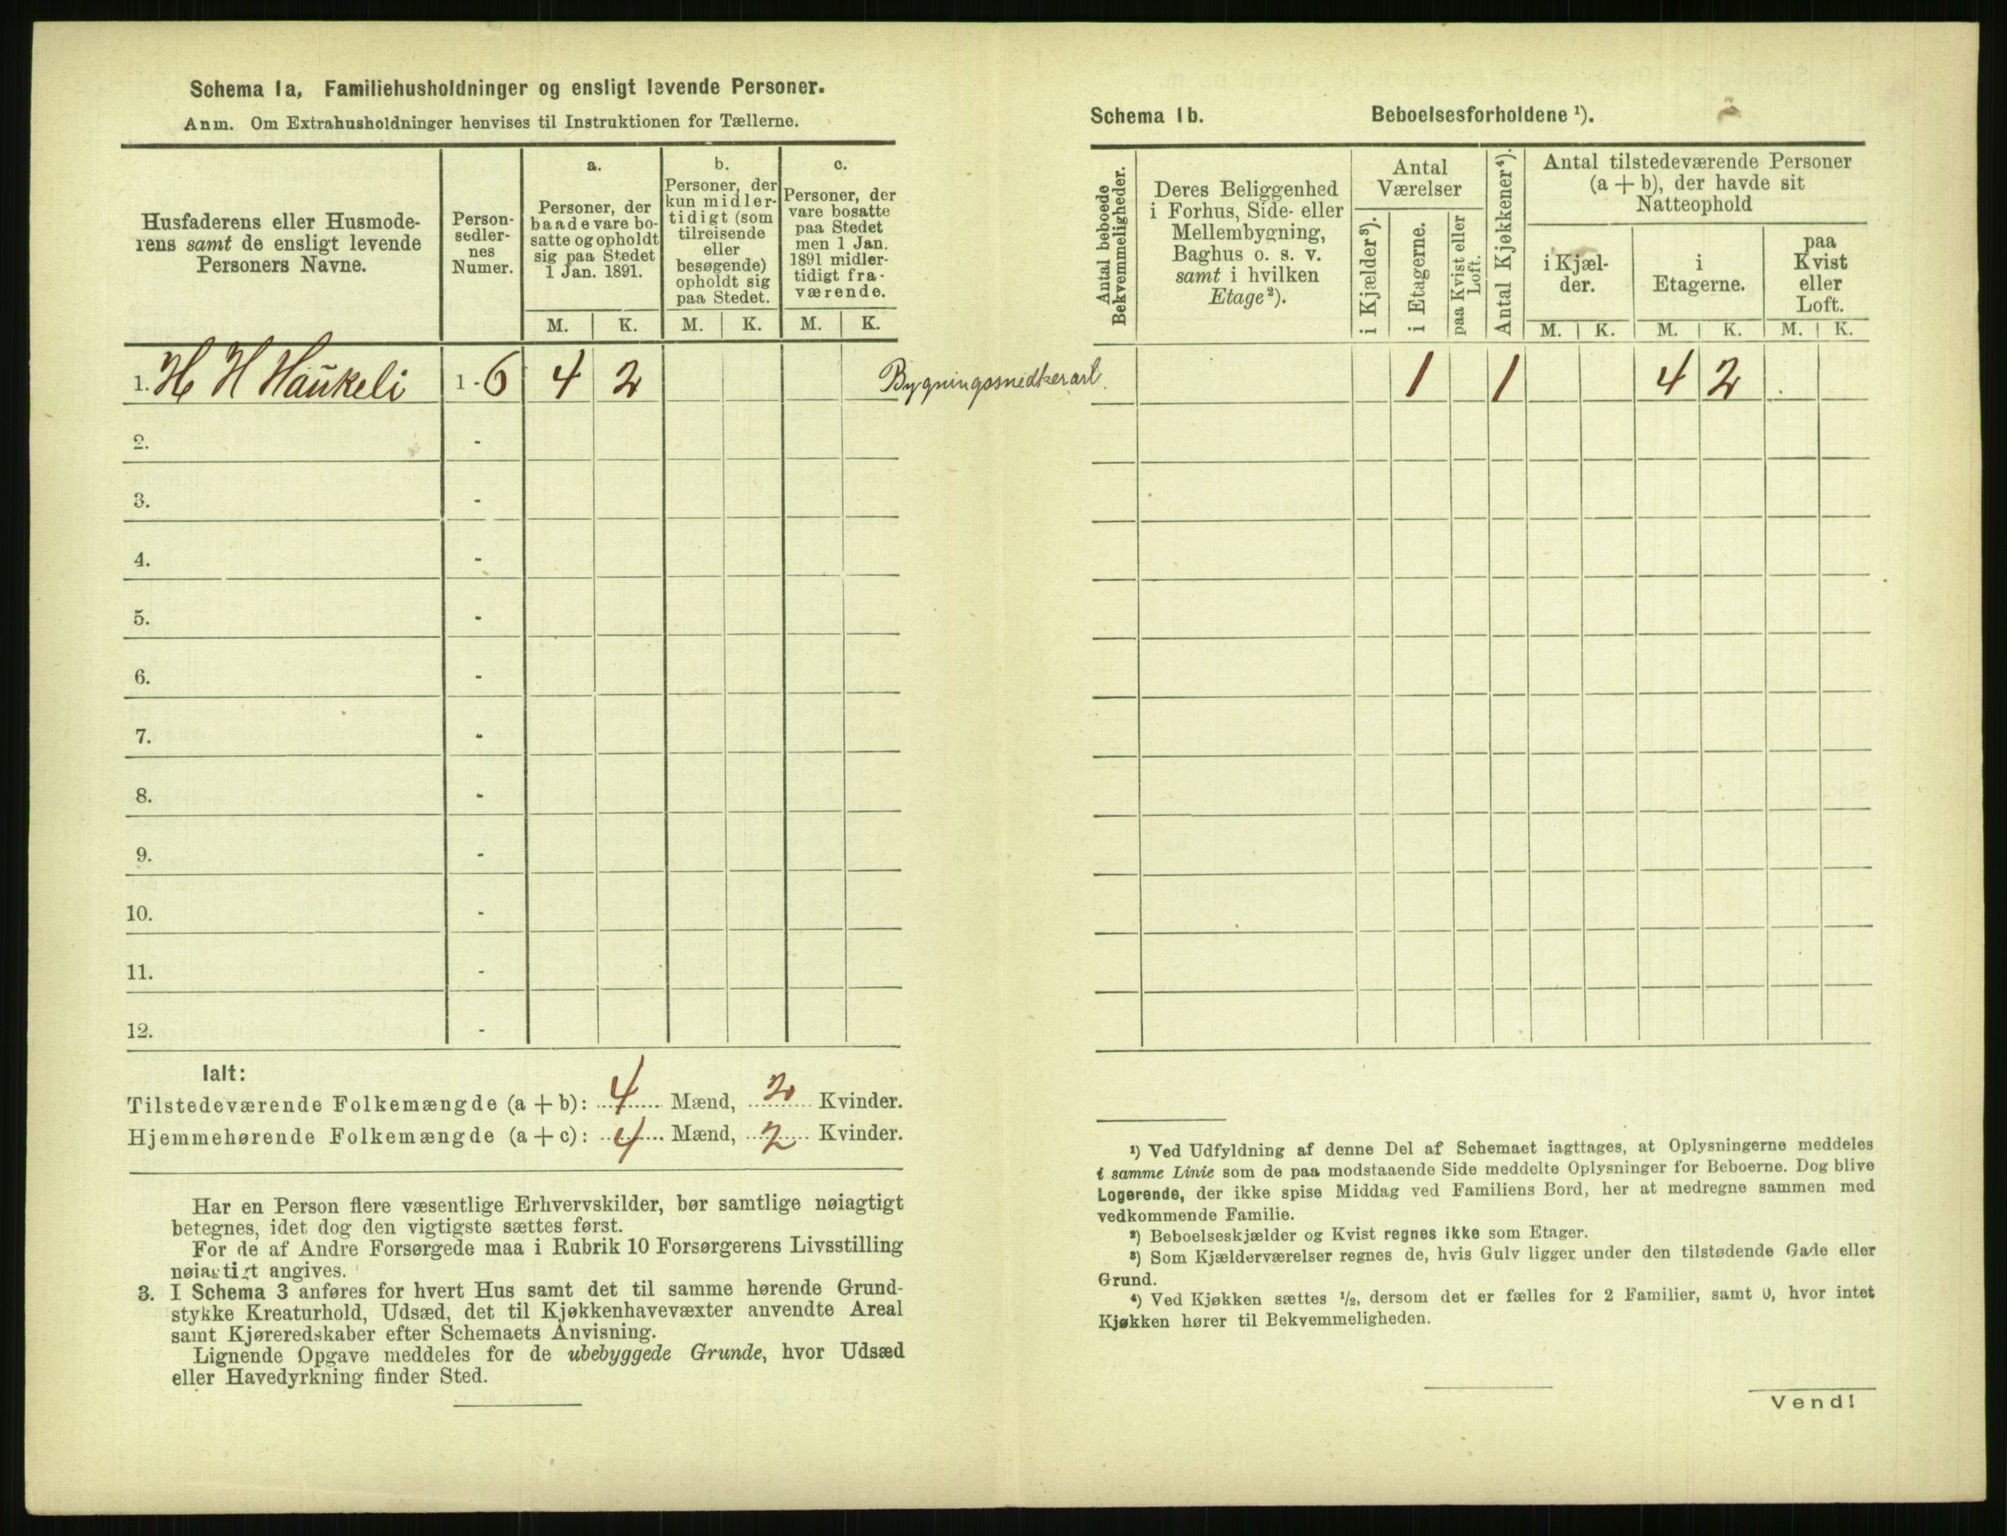 Schema Ia, Familiehusholdninger og ensligt levende Personer.
Anm. Om Extrahusholdninger henvises til Instruktionen for Tællerne.
Husfaderens eller Husmode-
rens samt de ensligt levende
Personers Navne.
Person-
sedler-
nes
Numer.
a.
Personer, der
baade vare bo-
satte og opholdt
sig paa Stedet
1 Jan. 1891.
b.
Personer, der
kun midler-
tidigt (som
tilreisende
eller
besøgende)
opholdt sig
paa Stedet.
c.
Personer, der
vare bosatte
paa Stedet
men 1 Jan.
1891 midler-
tidigt fra-
værende.
M. K. M. K. M. K.
1. H H Haukeli 1 - 6 4 2
Bygningssnedkerarb.
2. -
3. -
4. -
5. -
6. -
7. -
8. -
9. -
10. -
11. -
12. -
Ialt:
Tilstedeværende Folkemængde (a + b): 4 Mænd, 2 Kvinder.
Hjemmehørende Folkemængde (a + c): 4 Mænd, 2 Kvinder.
Har en Person flere væsentlige Erhvervskilder, bør samtlige nøiagtigt
betegnes, idet dog den vigtigste sættes først.
For de af Andre Forsørgede maa i Rubrik 10 Forsørgerens Livsstilling
nøiagtigt angives.
3. I Schema 3 anføres for hvert Hus samt det til samme hørende Grund-
stykke Kreaturhold, Udsæd, det til Kjøkkenhavevæxter anvendte Areal
samt Kjøreredskaber efter Schemaets Anvisning.
Lignende Opgave meddeles for de ubebyggede Grunde, hvor Udsæd
eller Havedyrkning finder Sted.
Schema Ib. Beboelsesforholdene ¹).
Antal beboede
Bekvemmeligheder.
Deres Beliggenhed
i Forhus, Side- eller
Mellembygning,
Baghus o. s. v.
samt i hvilken
Etage ²).
Antal
Værelser
i Kjælder ³).
i Etagerne.
paa Kvist eller
Loft.
Antal Kjøkkener ⁴).
Antal tilstedeværende Personer
(a + b), der havde sit
Natteophold
i Kjæl-
der.
i
Etagerne.
paa
Kvist
eller
Loft.
M. K. M. K. M. K.
1 1 4 2
¹) Ved Udfyldning af denne Del af Schemaet iagttages, at Oplysningerne meddeles
i samme Linie som de paa modstaaende Side meddelte Oplysninger for Beboerne. Dog blive
Logerende, der ikke spise Middag ved Familiens Bord, her at medregne sammen med
vedkommende Familie.
²) Beboelseskjælder og Kvist regnes ikke som Etager.
³) Som Kjælderværelser regnes de, hvis Gulv ligger under den tilstødende Gade eller
Grund.
⁴) Ved Kjøkken sættes ½, dersom det er fælles for 2 Familier, samt 0, hvor intet
Kjøkken hører til Bekvemmeligheden.
Vend!